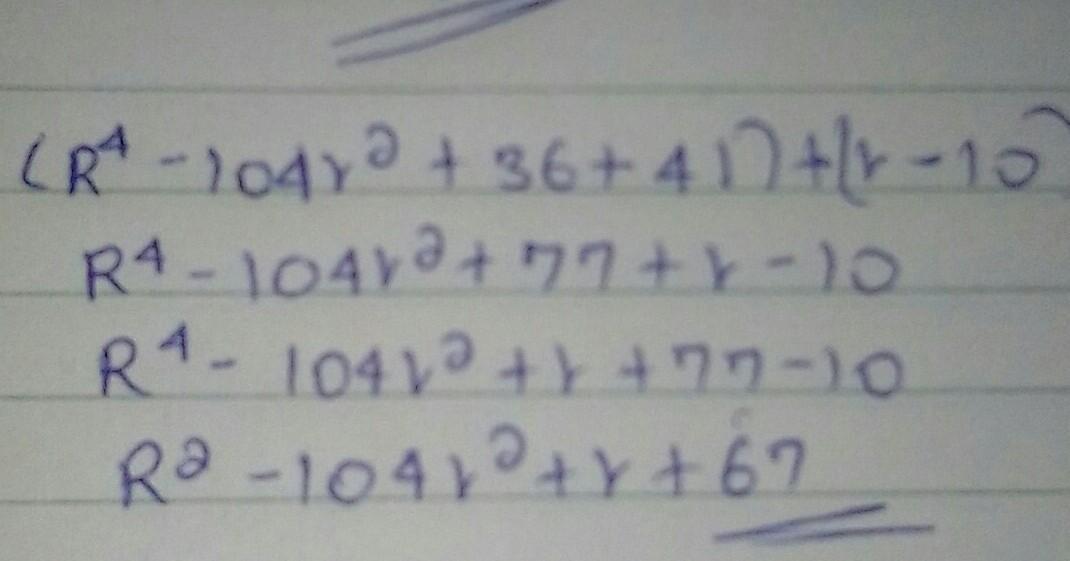 (R⁴ - 104r² + 36 + 41) + (r - 10)
R⁴ - 104r² + 77 + r - 10
R⁴ - 104r² + r + 77 - 10
R² - 104r² + r + 67